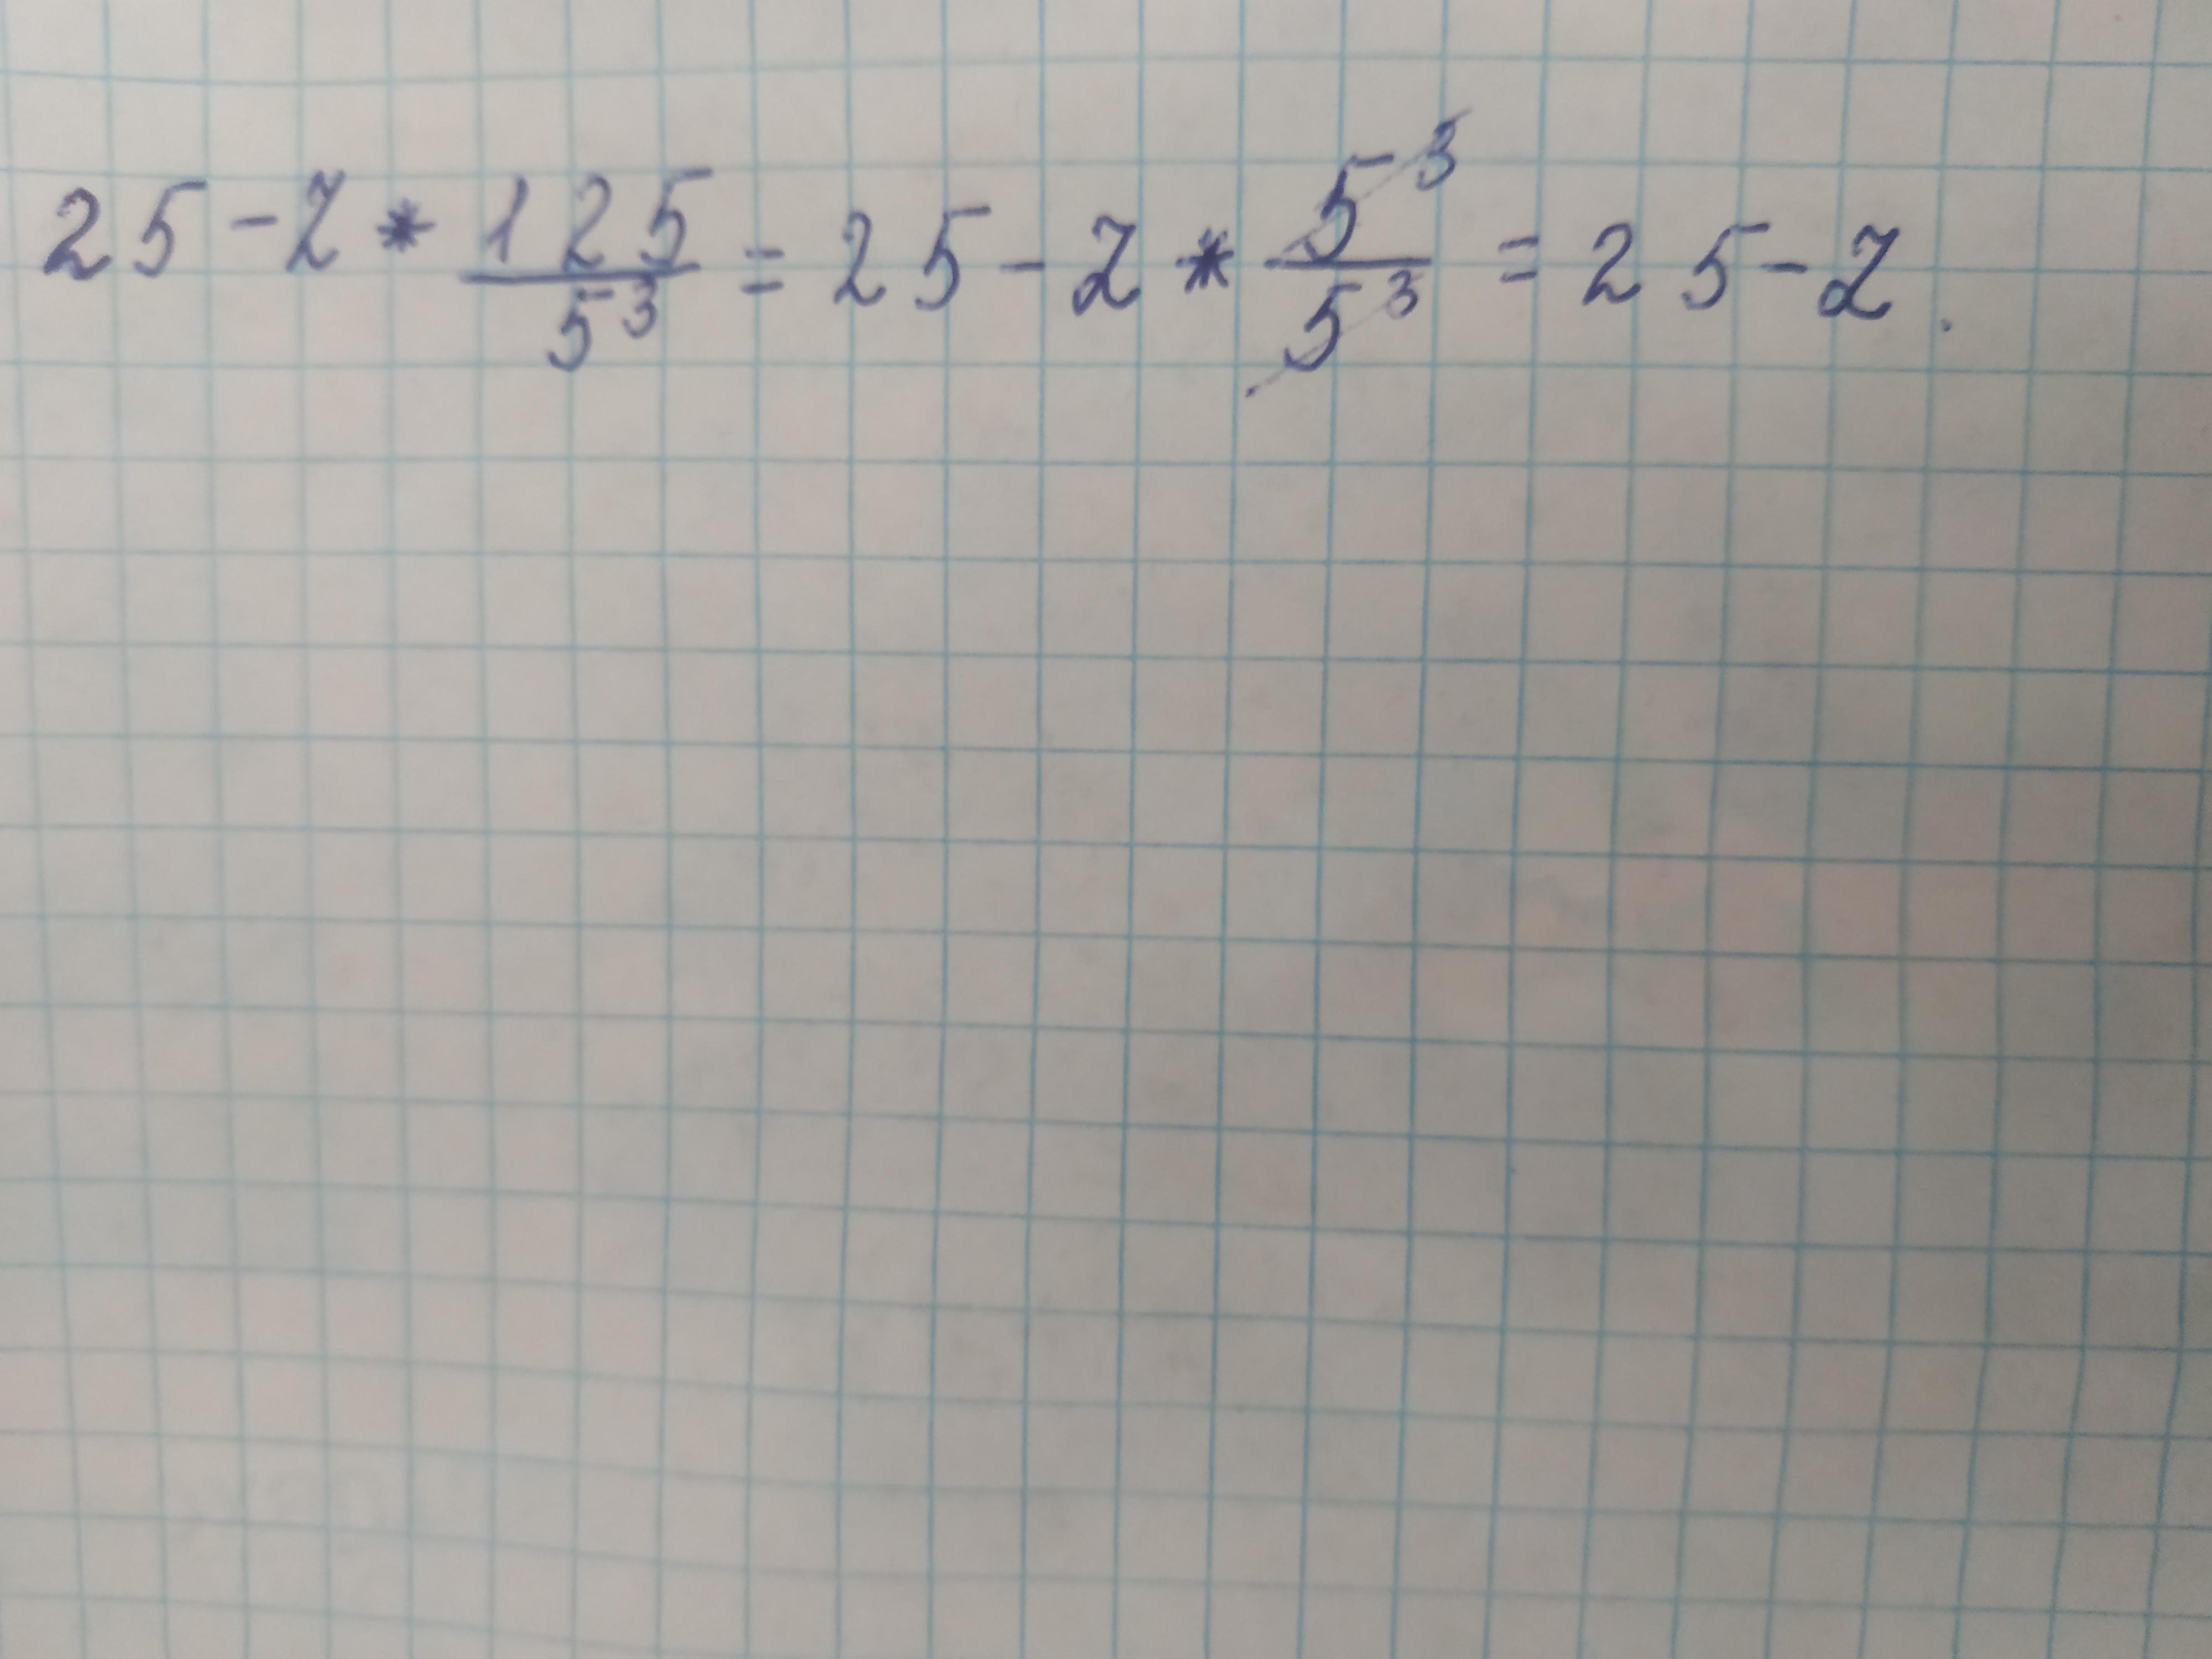 25 - Z * 125/5³ = 25 - Z * 5³/5³ = 25 - Z.